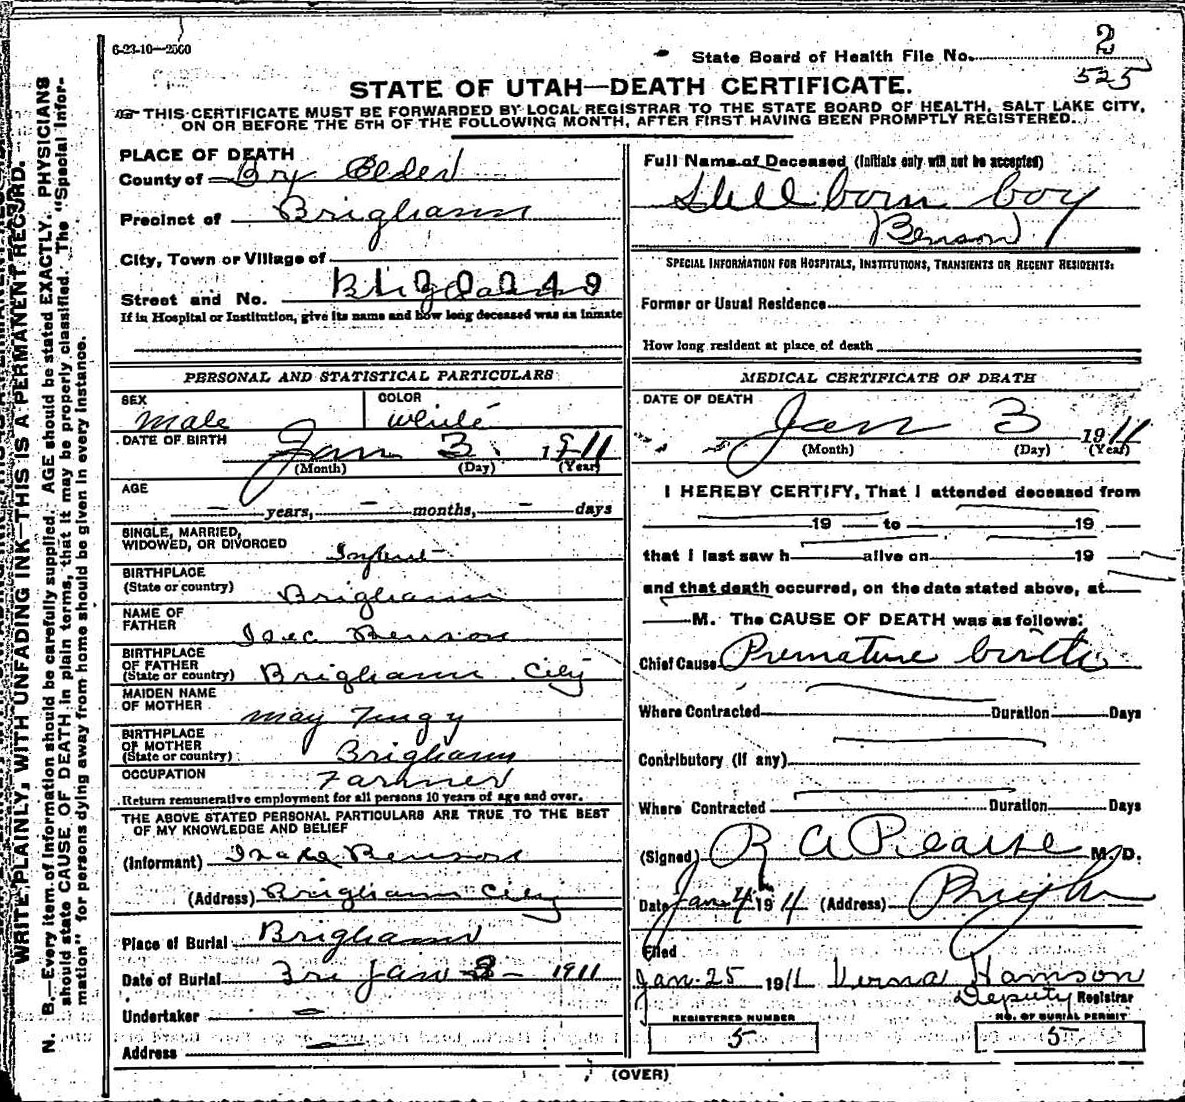 6-23-10—2500
State Board of Health File No. 2
525
STATE OF UTAH—DEATH CERTIFICATE.
THIS CERTIFICATE MUST BE FORWARDED BY LOCAL REGISTRAR TO THE STATE BOARD OF HEALTH, SALT LAKE CITY,
ON OR BEFORE THE 5TH OF THE FOLLOWING MONTH, AFTER FIRST HAVING BEEN PROMPTLY REGISTERED.
WRITE PLAINLY, WITH UNFADING INK—THIS IS A PERMANENT RECORD.
N. B.—Every item of information should be carefully supplied. AGE should be stated EXACTLY. PHYSICIANS
should state CAUSE OF DEATH in plain terms, that it may be properly classified. The "Special Infor-
mation" for persons dying away from home should be given in every instance.
PLACE OF DEATH
County of Box Elder
Precinct of Brigham
City, Town or Village of
Street and No. Brigham
If in Hospital or Institution, give its name and how long deceased was an inmate
PERSONAL AND STATISTICAL PARTICULARS
SEX COLOR
Male White
DATE OF BIRTH Jan 3 1911
(Month) (Day) (Year)
AGE
— years, — months, — days
SINGLE, MARRIED,
WIDOWED, OR DIVORCED
BIRTHPLACE
(State or country) Brigham
NAME OF
FATHER Isec Benson
BIRTHPLACE
OF FATHER
(State or country) Brigham City
MAIDEN NAME
OF MOTHER May
BIRTHPLACE
OF MOTHER
(State or country) Brigham
OCCUPATION Farmer
Return remunerative employment for all persons 10 years of age and over.
THE ABOVE STATED PERSONAL PARTICULARS ARE TRUE TO THE BEST
OF MY KNOWLEDGE AND BELIEF
(Informant) Benson
(Address) Brigham City
Place of Burial Brigham
Date of Burial Jan 3 1911
Undertaker —
Address —
Full Name of Deceased (Initials only will not be accepted)
Still born boy
Benson
SPECIAL INFORMATION FOR HOSPITALS, INSTITUTIONS, TRANSIENTS OR RECENT RESIDENTS:
Former or Usual Residence
How long resident at place of death
MEDICAL CERTIFICATE OF DEATH
DATE OF DEATH
Jan 3 1911
(Month) (Day) (Year)
I HEREBY CERTIFY, That I attended deceased from
19 to 19
that I last saw h alive on 19
and that death occurred, on the date stated above, at
M. The CAUSE OF DEATH was as follows:
Chief Cause Premature birth
Where Contracted Duration Days
Contributory (if any)
Where Contracted Duration Days
(Signed) R A Pearse M. D.
Date Jan 4 1911 (Address) Brigham
Filed
Jan 25 1911 Verna Hamson
Deputy Registrar
REGISTERED NUMBER NO. OF BURIAL PERMIT
5 5
(OVER)